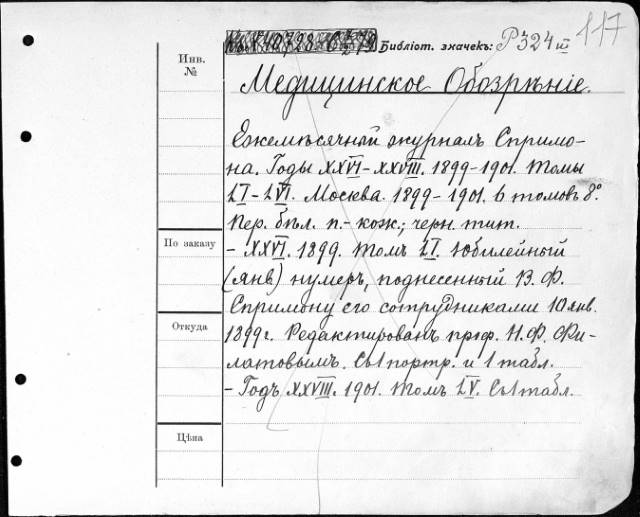 Библіот. значекъ: Р 324 III
117
Инв.
№
Медицинское Обозрѣніе.
Ежемѣсячный журналъ Спримо-
на. Годы XXVI-XXVIII. 1899-1901. Томы
LI-LVI. Москва. 1899-1901. 6 томовъ 8°.
Пер. бѣл. п.-кож.; черн. тит.
- XXVI. 1899. Томъ LI. Юбилейный
(янв) нумеръ, поднесенный В. Ф.
Спримону его сотрудниками 10 янв.
1899 г. Редактированъ проф. Н. Ф. Фи-
латовымъ. Съ 1 портр. и 1 табл.
- Годъ XXVIII. 1901. Томъ LV. Съ 1 табл.
По заказу
Откуда
Цѣна